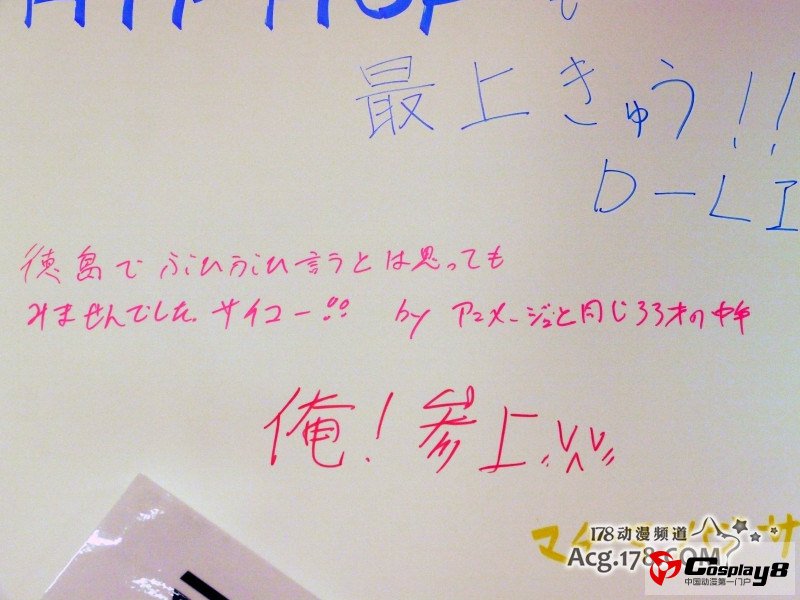 最上きゅう!!
D-LI
徳島でぶひぶひ言うとは思っても
みませんでした。サイコー!! by アニメージュと同じ33才の中年
俺!参上
178动漫频道
Acg.178.COM
Cosplay8
中国动漫第一门户